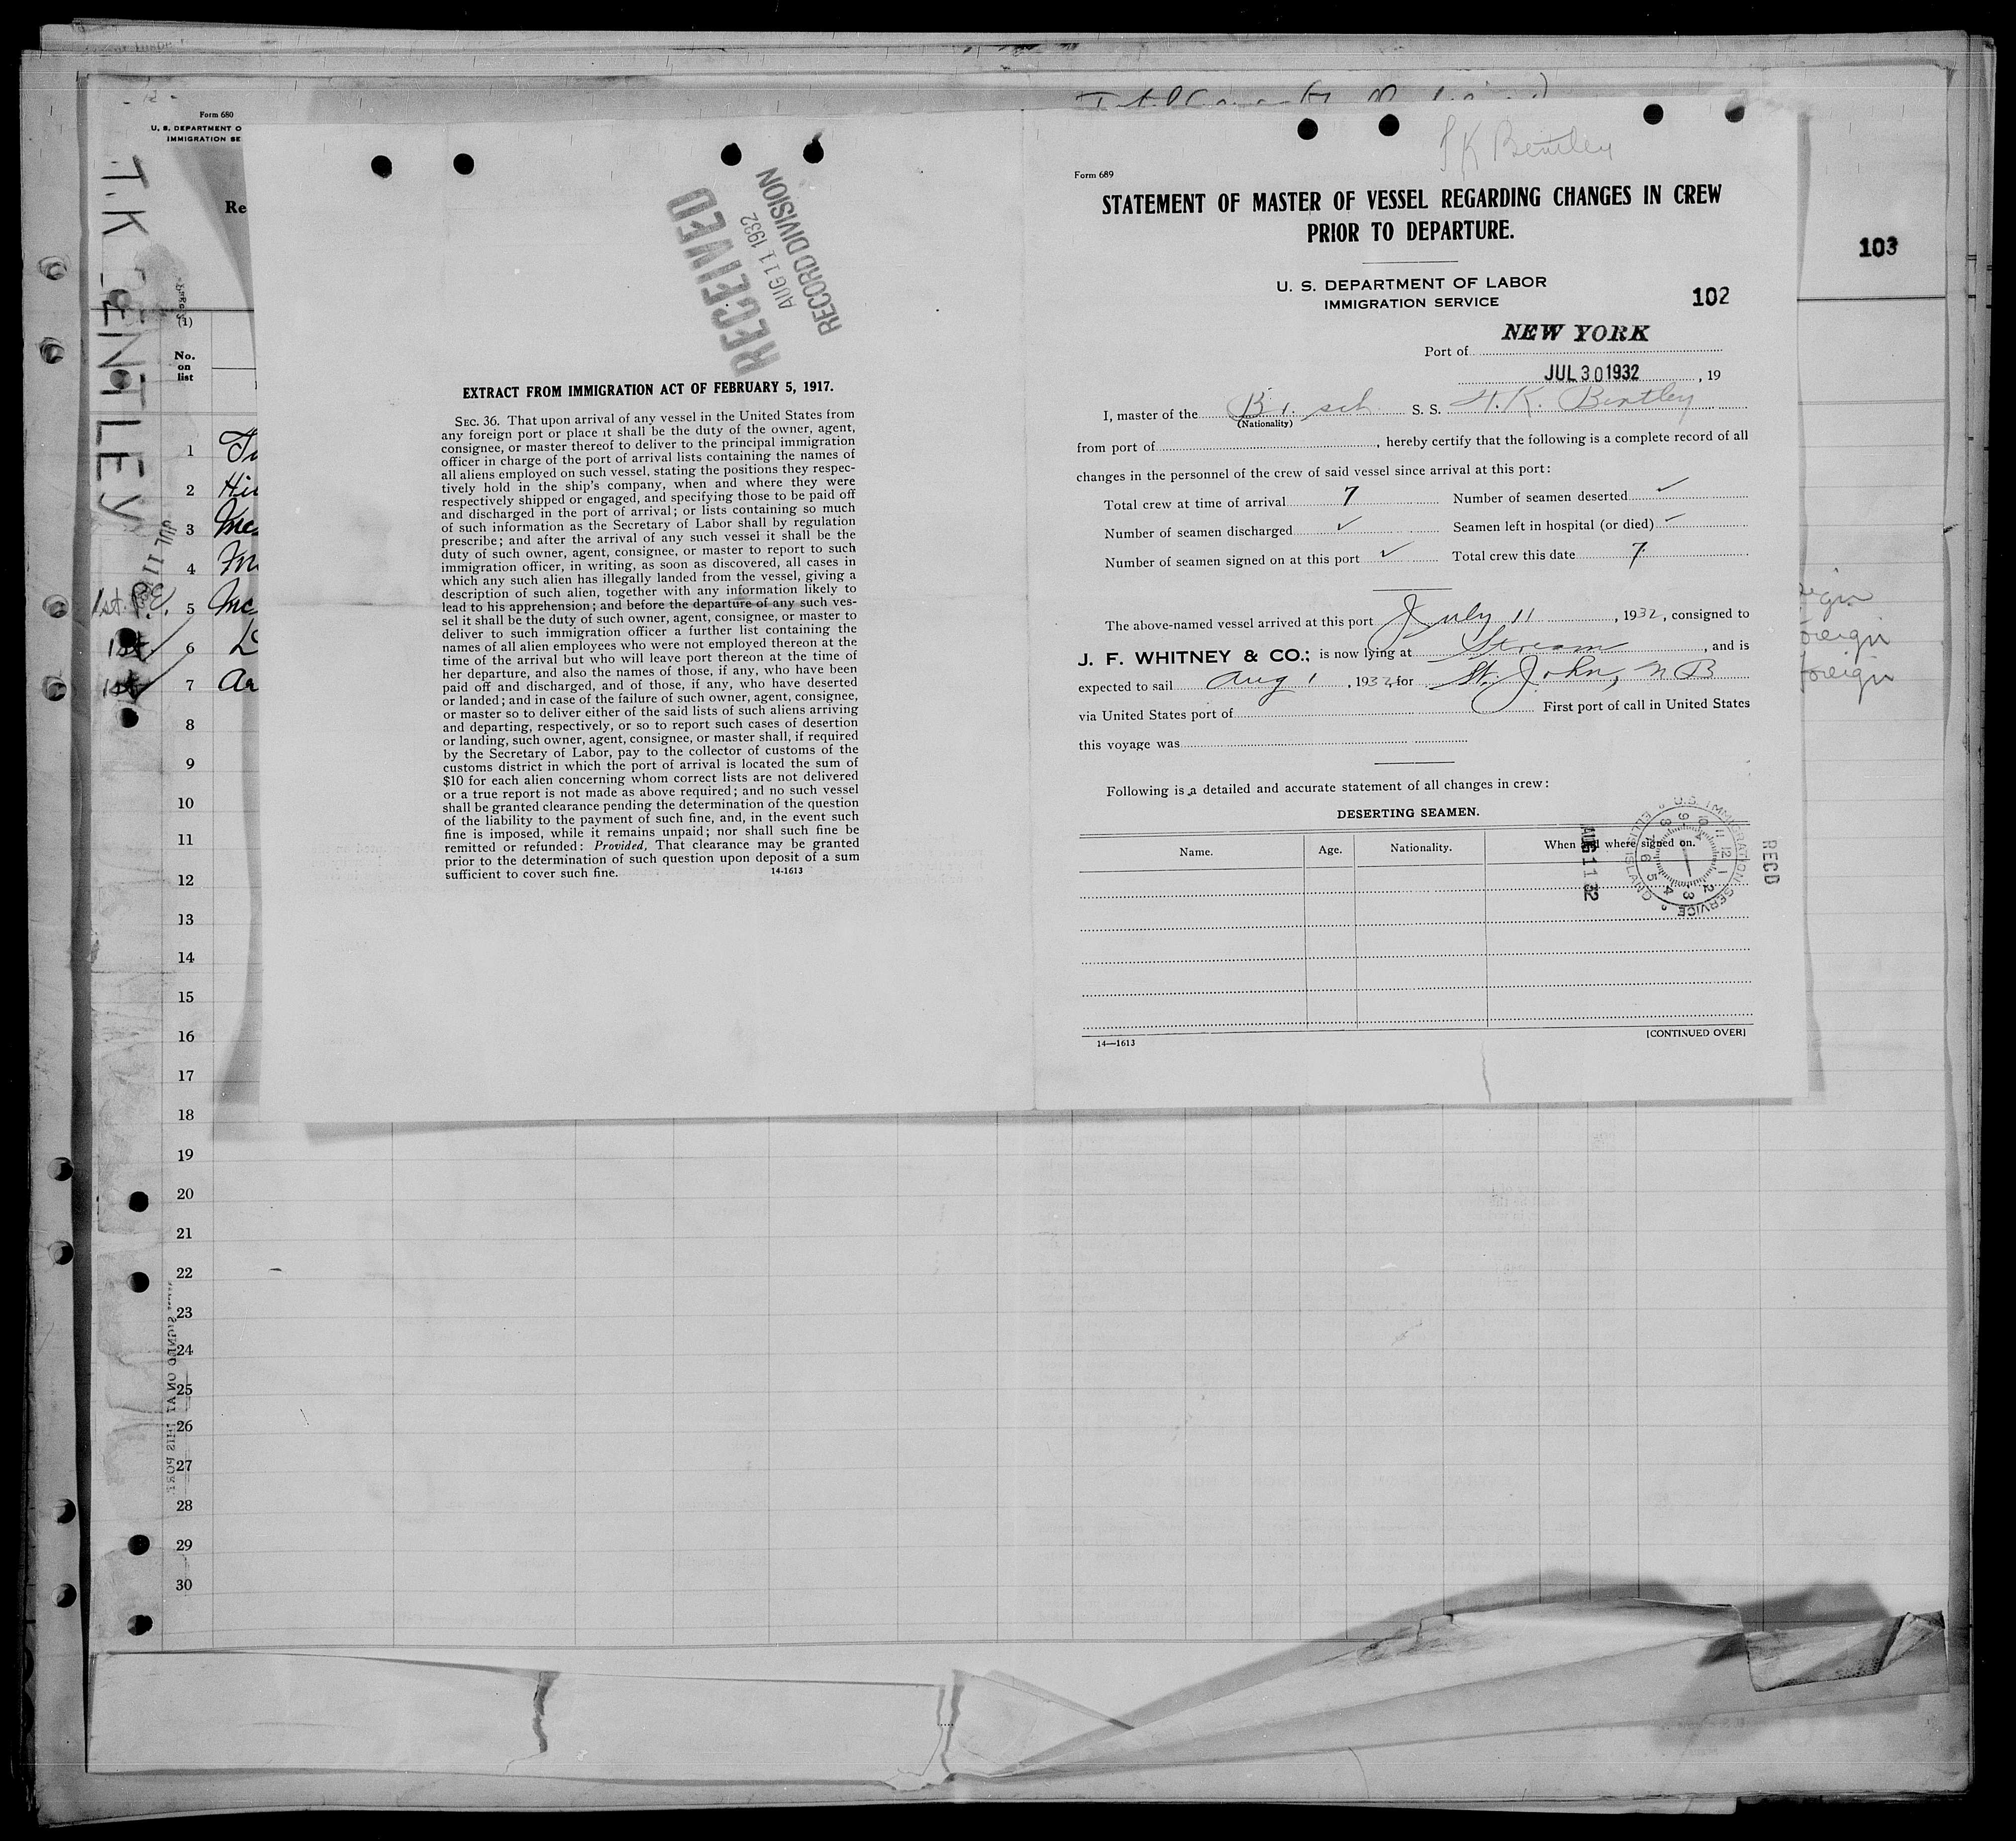 Form 680
U. S. DEPARTMENT O
IMMIGRATION SE
Re
(1)
No.
on
list
T. K. BENTLEY
JUL 11
1
2
3
4
5
6
7
8
9
10
11
12
13
14
15
16
17
18
19
20
21
22
23
24
25
26
27
28
29
30
RECEIVED
AUG 11 1932
RECORD DIVISION
EXTRACT FROM IMMIGRATION ACT OF FEBRUARY 5, 1917.
SEC. 36. That upon arrival of any vessel in the United States from
any foreign port or place it shall be the duty of the owner, agent,
consignee, or master thereof to deliver to the principal immigration
officer in charge of the port of arrival lists containing the names of
all aliens employed on such vessel, stating the positions they respec-
tively hold in the ship's company, when and where they were
respectively shipped or engaged, and specifying those to be paid off
and discharged in the port of arrival; or lists containing so much
of such information as the Secretary of Labor shall by regulation
prescribe; and after the arrival of any such vessel it shall be the
duty of such owner, agent, consignee, or master to report to such
immigration officer, in writing, as soon as discovered, all cases in
which any such alien has illegally landed from the vessel, giving a
description of such alien, together with any information likely to
lead to his apprehension; and before the departure of any such ves-
sel it shall be the duty of such owner, agent, consignee, or master to
deliver to such immigration officer a further list containing the
names of all alien employees who were not employed thereon at the
time of the arrival but who will leave port thereon at the time of
her departure, and also the names of those, if any, who have been
paid off and discharged, and of those, if any, who have deserted
or landed; and in case of the failure of such owner, agent, consignee,
or master so to deliver either of the said lists of such aliens arriving
and departing, respectively, or so to report such cases of desertion
or landing, such owner, agent, consignee, or master shall, if required
by the Secretary of Labor, pay to the collector of customs of the
customs district in which the port of arrival is located the sum of
$10 for each alien concerning whom correct lists are not delivered
or a true report is not made as above required; and no such vessel
shall be granted clearance pending the determination of the question
of the liability to the payment of such fine, and, in the event such
fine is imposed, while it remains unpaid; nor shall such fine be
remitted or refunded: Provided, That clearance may be granted
prior to the determination of such question upon deposit of a sum
sufficient to cover such fine. 14-1613
K Bentley
Form 689
STATEMENT OF MASTER OF VESSEL REGARDING CHANGES IN CREW
PRIOR TO DEPARTURE.
U. S. DEPARTMENT OF LABOR
IMMIGRATION SERVICE
102
103
Port of NEW YORK
JUL 30 1932, 19
I, master of the Br. sch. S. S. T. K. Bentley
(Nationality)
from port of , hereby certify that the following is a complete record of all
changes in the personnel of the crew of said vessel since arrival at this port:
Total crew at time of arrival 7 Number of seamen deserted ✓
Number of seamen discharged ✓ Seamen left in hospital (or died) ✓
Number of seamen signed on at this port ✓ Total crew this date 7
The above-named vessel arrived at this port July 11, 1932, consigned to
J. F. WHITNEY & CO.; is now lying at Stream, and is
expected to sail Aug 1, 1932, for St. John, N B
via United States port of First port of call in United States
this voyage was
Following is a detailed and accurate statement of all changes in crew:
DESERTING SEAMEN.
Name. Age. Nationality. When and where signed on.
AUG 1 1 32
U.S. IMMIGRATION SERVICE
ELLIS ISLAND
RECD
14—1613 [CONTINUED OVER]
foreign
foreign